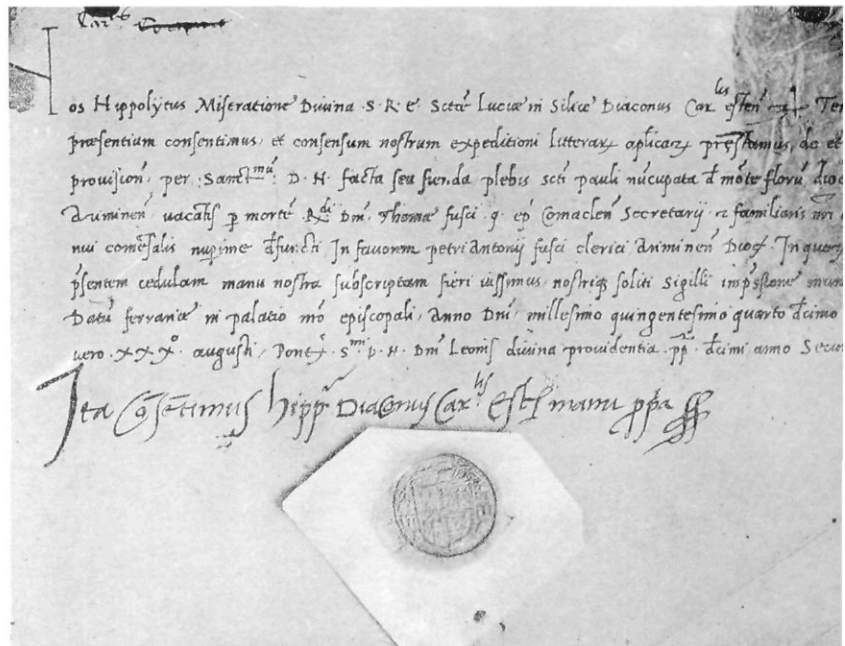 Car.lis
os Hippolytus Miseratione Divina S. R. e. Scte Luciæ in Silice Diaconus Car.lis estens
præsentium consentimus, et consensum nostrum expeditioni litterarz aplicarz prestamus, de et
provision per Sanct.mu D. N. facta seu fienda plebis scti pauli nucupata d mote floru dioc
Ariminen vacatis p morte R.di Dni Thomæ fusci q. epi Comaclen Secretarij & familiaris nri
nui comesalis nupime dfuncti In favorem petri Antonij fusci clerici Ariminen Dioc. In quorz
psentem cedulam manu nostra subscriptam fieri iussimus, nostriq soliti Sigilli impssione mun
Datu ferrariæ in palatio nro episcopali, Anno Dni millesimo quingentesimo quarto dcimo
vero xxxo augusti, Pont. S.mi D. N. Dni Leonis divina providentia pp. dcimi anno Secun
Ita Cosetimus hipp. Diaconus Car.lis Estes manu ppa